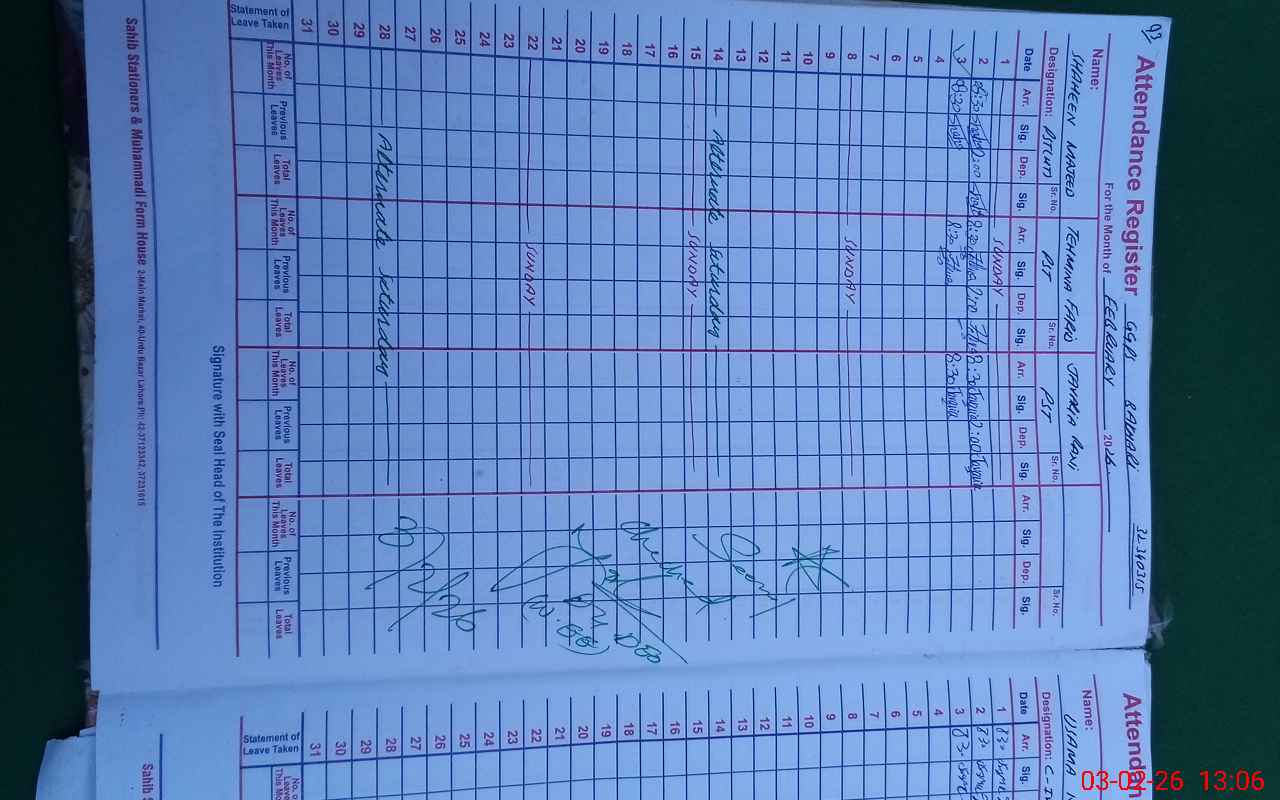 92
Attendance Register GGPS 32340315
For the Month of FEBRUARY 2026
Name: SHAHEEN MAJEED TEHMINA FARID RANI
Designation: PST Sr. No. PST Sr. No. PST Sr. No. Sr. No.
Date Arr. Sig. Dep. Sig. Arr. Sig. Dep. Sig. Arr. Sig. Dep. Sig. Arr. Sig. Dep. Sig.
1 SUNDAY
2 08:30 2:00 8:30 2:00 8:30 2:00
3 08:30 8:30 8:30
4
5
6
7
8 SUNDAY
9
10
11
12
13
14 Alternate Seturday
15 SUNDAY
16
17
18
19
20
21
22 SUNDAY
23
24
25
26
27
28 Alternate Seturday
29
30
31
DEO
3/2/26
Statement of Leave Taken No. of Leaves This Month Previous Leaves Total Leaves No. of Leaves This Month Previous Leaves Total Leaves No. of Leaves This Month Previous Leaves Total Leaves No. of Leaves This Month Previous Leaves Total Leaves
Signature with Seal Head of The Institution
Sahib Stationers & Muhammadi Form House 2-Main Market, 40-Urdu Bazar Lahore Ph: 42-37123342, 37231615
Attendan
Name: USAMA
Designation: C-I
Date Arr. Sig.
1 830
2 830
3 830
4
5
6
7
8
9
10
11
12
13
14
15
16
17
18
19
20
21
22
23
24
25
26
27
28
29
30
31
Statement of Leave Taken No. of Leaves This Month
Sahib S
03-02-26 13:06